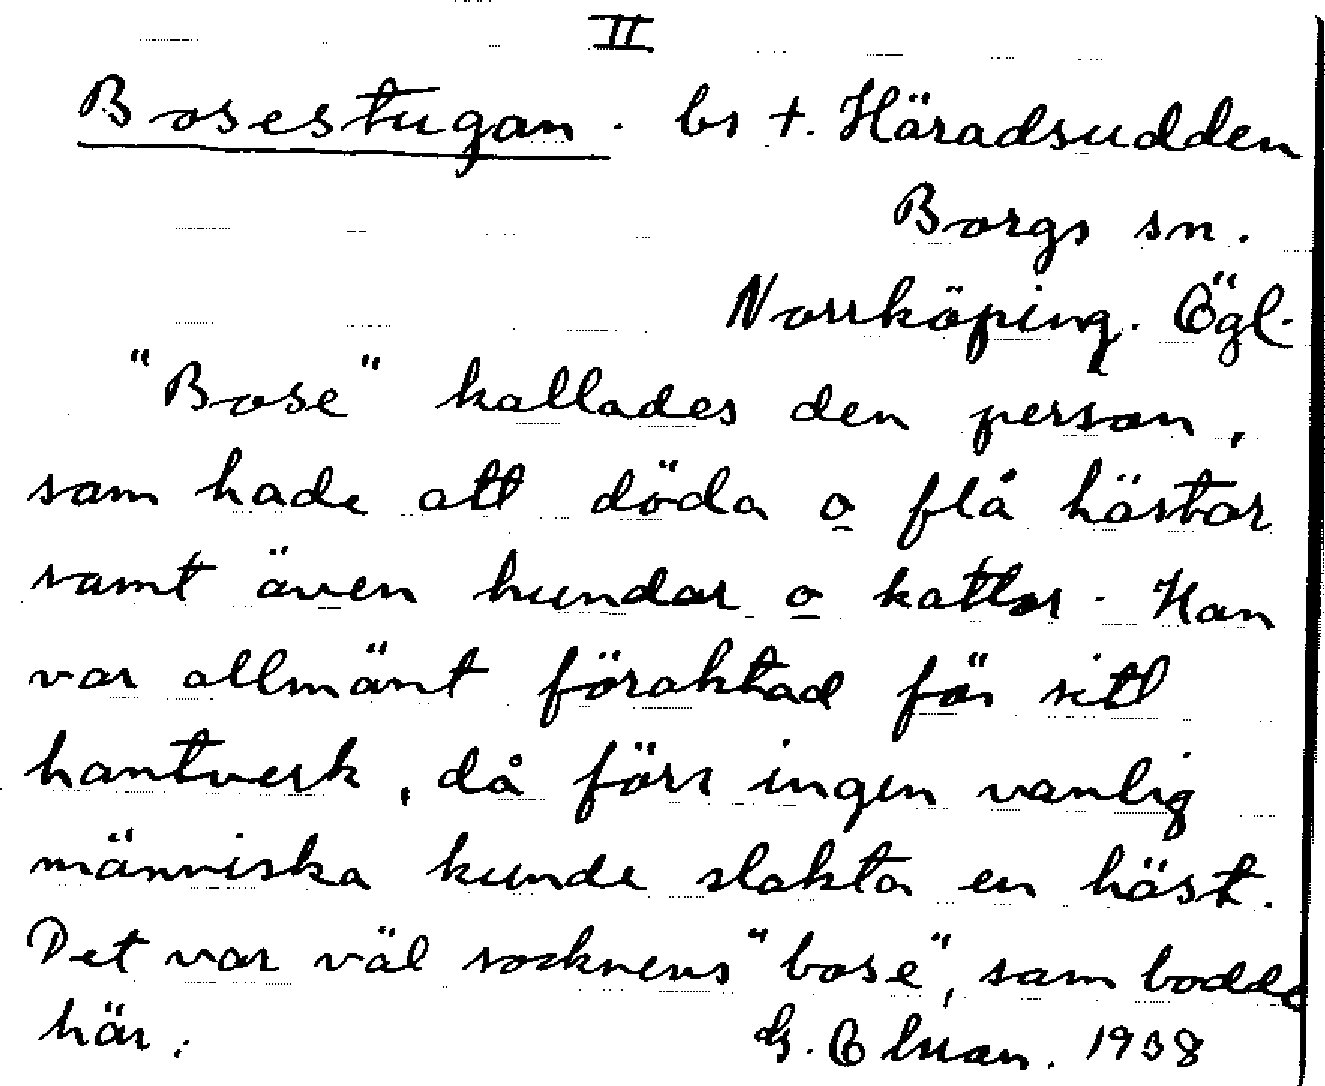 II
Bosestugan. bs t. Häradsudden
Borgs sn.
Norrköping. Ögl.
"Bose" kallades den person,
som hade att döda o flå hästar
samt även hundar o kattor. Han
var allmänt föraktad för sitt
hantverk, då förr ingen vanlig
människa kunde slakta en häst.
Det var väl socknens "bose", som bodde
här.
G. 1938